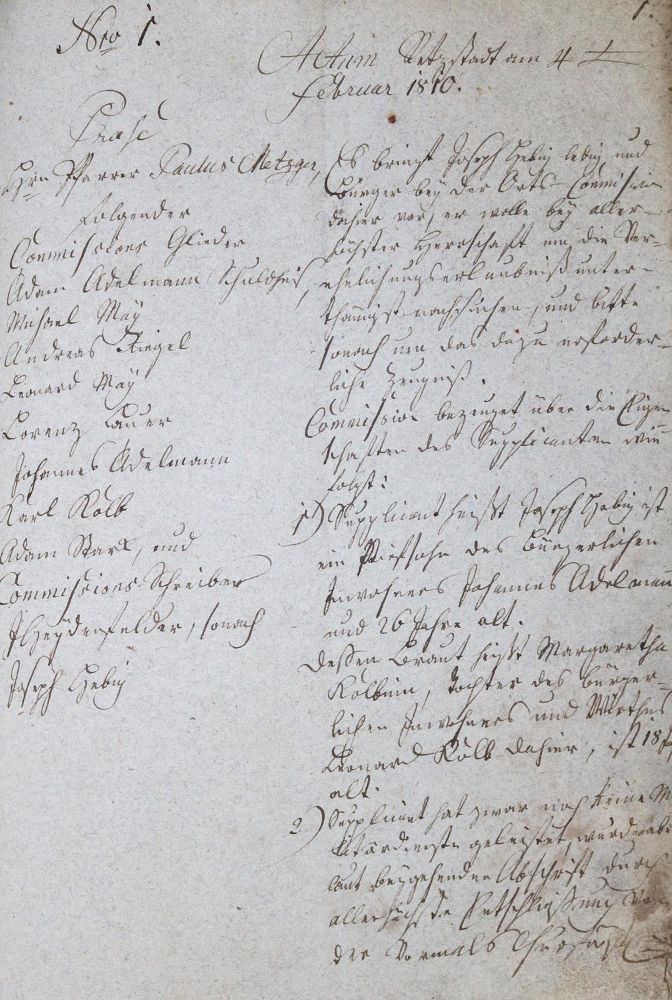 Nro 1.
1.
Actum Retzstadt am 4
Februar 1810.
Praes
Hrn Pfarrer Paulus Metzger,
Folgender
Commissions Glieder
Adam Adelmann Schuldheis,
Michael Mäÿ
Andreas Riegel
Leonard Mäÿ
Lorenz Lauer
Johannes Adelmann
Karl Kölb
Adam Stark, und
Commissions Schreiber
Heydenfelder, sonach
Joseph Hebig
Es bringt Joseph Hebig ledig und
Bürger bey der Orts-Commission
dahier vor, er wolle bey aller-
höchster Herrschaft um die Ver-
ehelichungserlaubniß unter-
thänigst nachsuchen, und bitte
sonach um das dazu erforder-
liche Zeugniß.
Commission bezeuget über die Eigen-
schaften des Supplicanten wie
folgt:
1) Supplicant heißt Joseph Hebig ist
ein Stiefsohn des bürgerlichen
Inwohners Johannes Adelmann
und 26 Jahre alt.
Dessen Braut heißt Margaretha
Kölbin, Tochter des bürger-
lichen Inwohners und Wirthes
Leonard Kölb dahier, ist 18
alt.
2) Supplicant hat zwar noch keine Mi-
litärdienste geleistet, wurde aber
laut beygehender Abschrift durch
allerhöchste Entschließung
der vormals